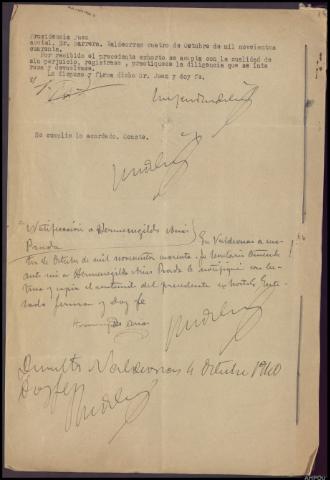 Providencia Juez
acctal. Sr. Barrera. Valdeorras cuatro de Octubre de mil novecientos
cuarenta.
Por recibido el precedente exhorto se acepta con la cualidad de
sin perjuicio, registrese, practiquese la diligencia que se inte
resa y devuelvase.
Lo dispuso y firma dicho Sr. Juez y doy fe.
Se cumple lo acordado. Consta.
Notificación a Hermenegildo Arias
Prada
En Valdeorras a cua
tro de Octubre de mil novecientos cuarenta. yo Secretario
ante mi a Hermenegildo Arias Prada le notifiqué con lec-
tura y copia el contenido del precedente exhorto. Ente-
rado firma y doy fe
Hermenegildo Arias
Valdeorras 4 Octubre 1940
Doy fe
AHPOU